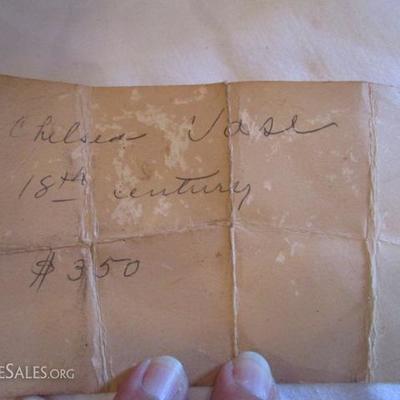 Chelsea Vase
18th century
$350
ESALES.ORG